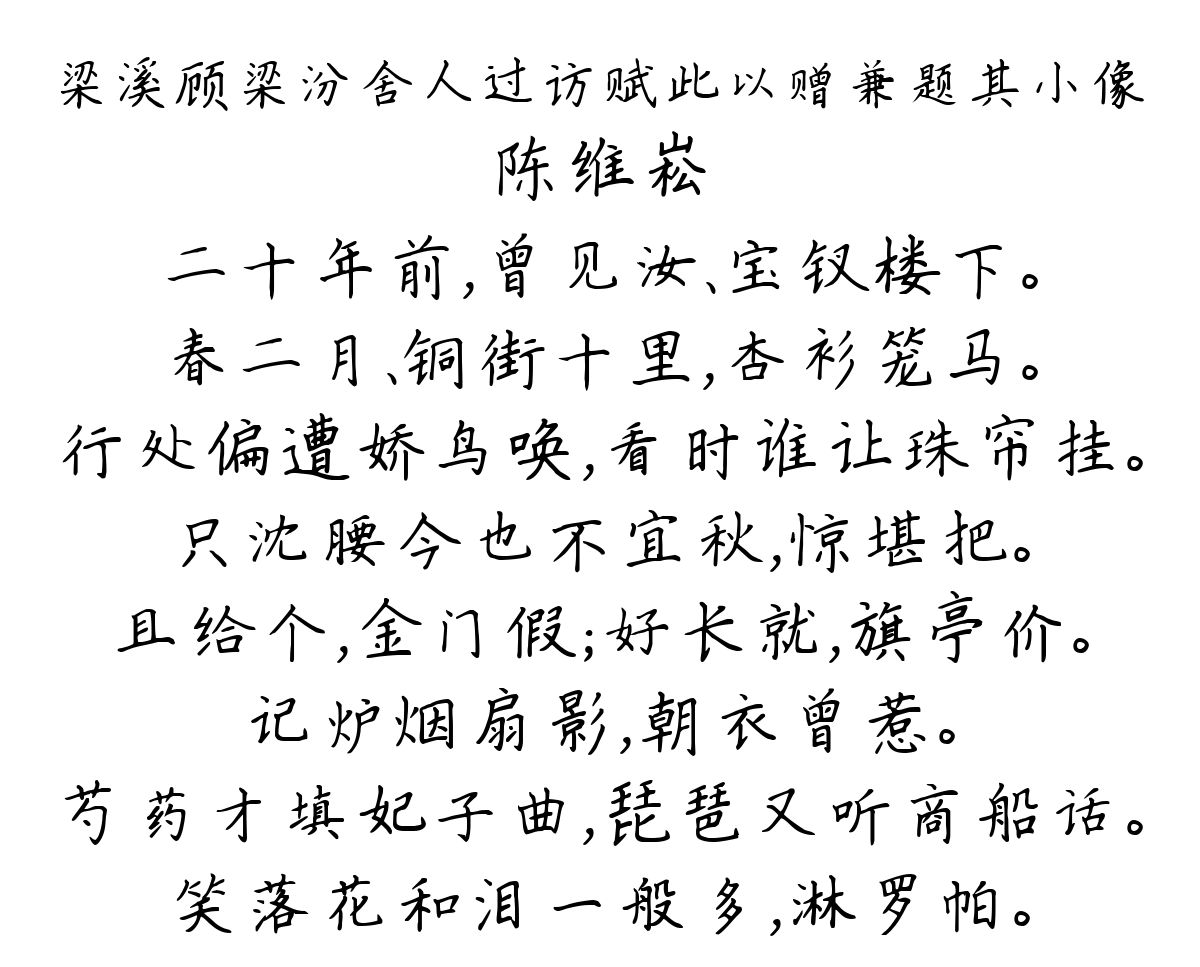 梁溪顾梁汾舍人过访赋此以赠兼题其小像
陈维崧
二十年前,曾见汝、宝钗楼下。
春二月、铜街十里,杏衫笼马。
行处偏遭娇鸟唤,看时谁让珠帘挂。
只沈腰今也不宜秋,惊堪把。
且给个,金门假;好长就,旗亭价。
记炉烟扇影,朝衣曾惹。
芍药才填妃子曲,琵琶又听商船话。
笑落花和泪一般多,淋罗帕。